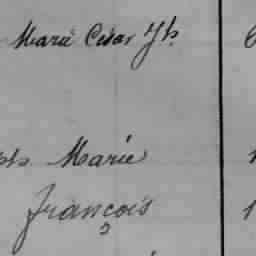 Marie César Jh
ph Marie
François